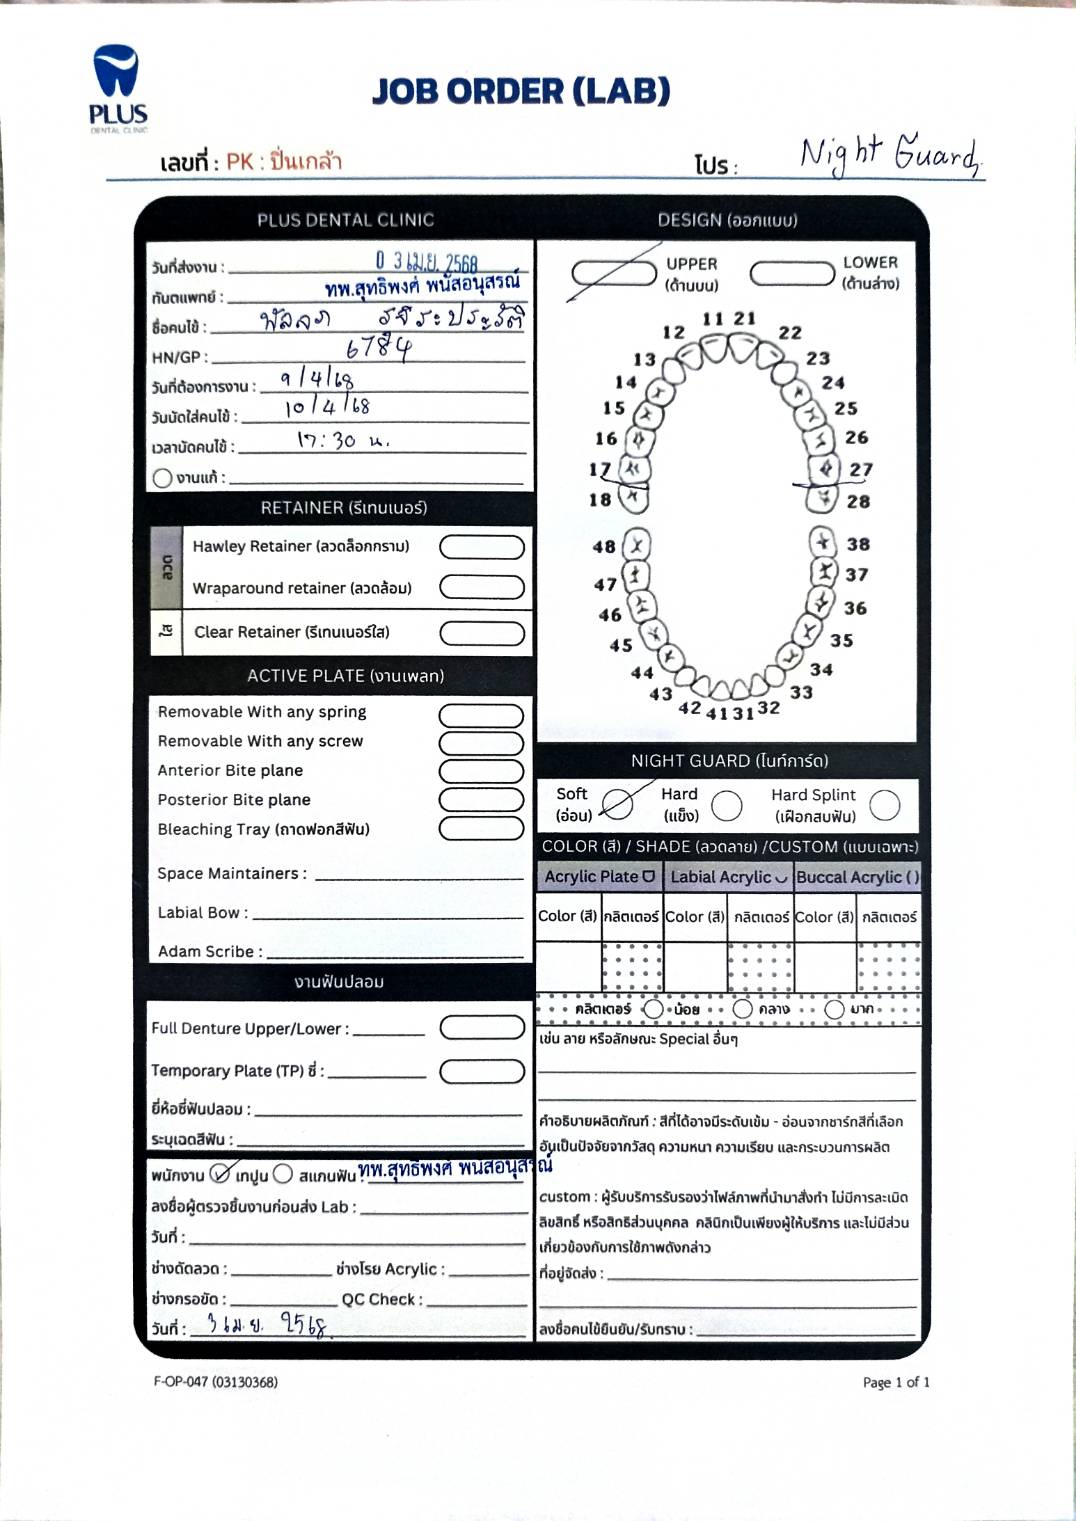 PLUS
DENTAL CLINIC
JOB ORDER (LAB)
เลขที่ : PK : ปิ่นเกล้า
โปร : Night Guard
PLUS DENTAL CLINIC
วันที่ส่งงาน : 0 3 เม.ย. 2568
ทันตแพทย์ : ทพ.สุทธิพงศ์ พนัสอนุสรณ์
ชื่อคนไข้ :
HN/GP : 6784
วันที่ต้องการงาน : 9/4/68
วันนัดใส่คนไข้ : 10/4/68
เวลานัดคนไข้ : 17:30 น.
งานแก้ :
RETAINER (รีเทนเนอร์)
ลวด
Hawley Retainer (ลวดล็อกกราม)
Wraparound retainer (ลวดล้อม)
ใส
Clear Retainer (รีเทนเนอร์ใส)
ACTIVE PLATE (งานเพลท)
Removable With any spring
Removable With any screw
Anterior Bite plane
Posterior Bite plane
Bleaching Tray (ถาดฟอกสีฟัน)
Space Maintainers :
Labial Bow :
Adam Scribe :
งานฟันปลอม
Full Denture Upper/Lower :
Temporary Plate (TP) ซี่ :
ยี่ห้อซี่ฟันปลอม :
ระบุเฉดสีฟัน :
พนักงาน เทปูน สแกนฟัน : ทพ.สุทธิพงศ์ พนัสอนุสรณ์
ลงชื่อผู้ตรวจชิ้นงานก่อนส่ง Lab :
วันที่ :
ช่างดัดลวด : ช่างโรย Acrylic :
ช่างกรอขัด : QC Check :
วันที่ : 3 เม.ย. 2568
DESIGN (ออกแบบ)
UPPER
(ด้านบน)
LOWER
(ด้านล่าง)
11 21
12 22
13 23
14 24
15 25
16 26
17 27
18 28
48 38
47 37
46 36
45 35
44 34
43 33
42 41 31 32
NIGHT GUARD (ไนท์การ์ด)
Soft
(อ่อน)
Hard
(แข็ง)
Hard Splint
(เฝือกสบฟัน)
COLOR (สี) / SHADE (ลวดลาย) /CUSTOM (แบบเฉพาะ)
Acrylic Plate Labial Acrylic Buccal Acrylic ( )
Color (สี) กลิตเตอร์ Color (สี) กลิตเตอร์ Color (สี) กลิตเตอร์
กลิตเตอร์ น้อย กลาง มาก
เช่น ลาย หรือลักษณะ Special อื่นๆ
คำอธิบายผลิตภัณฑ์ : สีที่ได้อาจมีระดับเข้ม - อ่อนจากชาร์ทสีที่เลือก
อันเป็นปัจจัยจากวัสดุ ความหนา ความเรียบ และกระบวนการผลิต
custom : ผู้รับบริการรับรองว่าไฟล์ภาพที่นำมาสั่งทำ ไม่มีการละเมิด
ลิขสิทธิ์ หรือสิทธิส่วนบุคคล คลินิกเป็นเพียงผู้ให้บริการ และไม่มีส่วน
เกี่ยวข้องกับการใช้ภาพดังกล่าว
ที่อยู่จัดส่ง :
ลงชื่อคนไข้ยืนยัน/รับทราบ :
F-OP-047 (03130368)
Page 1 of 1